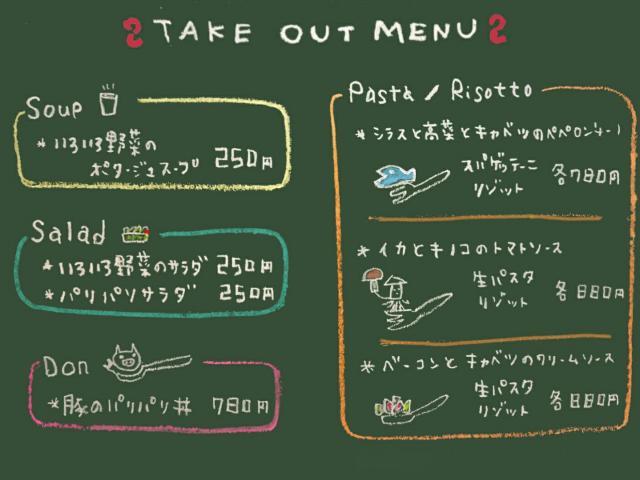 TAKE OUT MENU
Soup
*いろいろ野菜の
ポタージュスープ 250円
Salad
*いろいろ野菜のサラダ 250円
*パリパリサラダ 250円
Don
*豚のパリパリ丼 780円
Pasta / Risotto
*シラスと高菜とキャベツのペペロンチーノ
スパゲッティーニ
リゾット
各780円
*イカとキノコのトマトソース
生パスタ
リゾット
各880円
*ベーコンとキャベツのクリームソース
生パスタ
リゾット
各880円